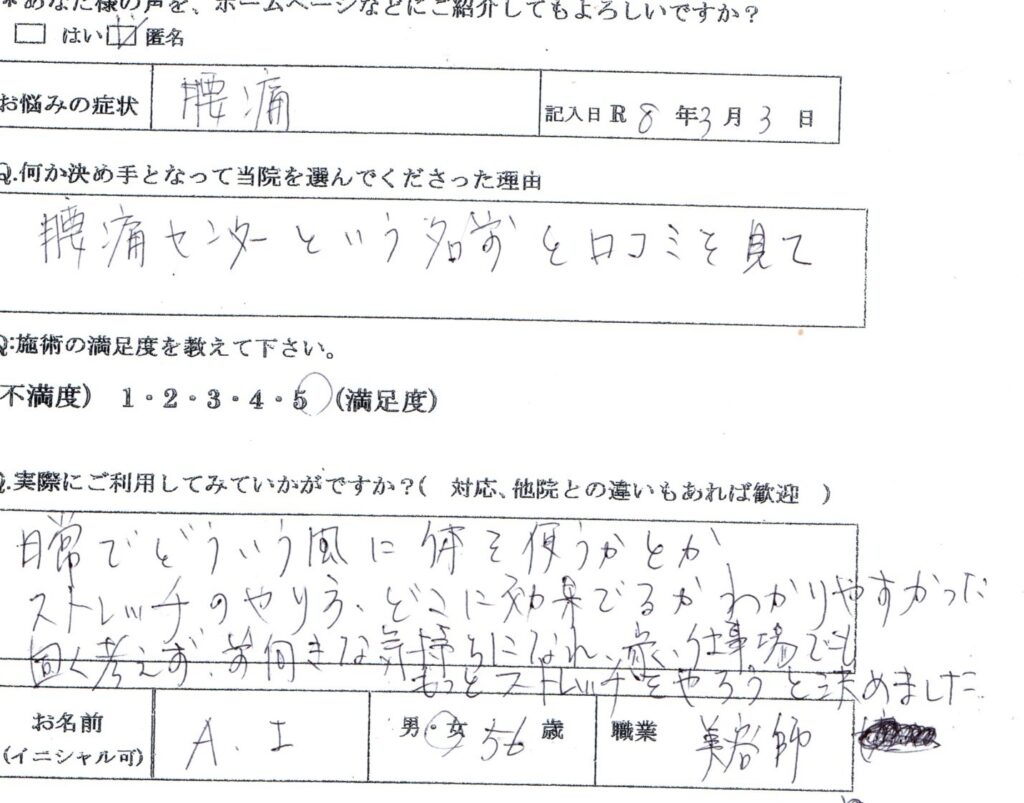 *あなた様の声を、ホームページなどにご紹介してもよろしいですか？
はい 匿名
お悩みの症状 腰痛 記入日 R 8 年 3 月 3 日
Q.何か決め手となって当院を選んでくださった理由
腰痛センターという名前と口コミを見て
Q:施術の満足度を教えて下さい。
不満度） 1・2・3・4・5 （満足度）
Q.実際にご利用してみていかがですか？（ 対応、他院との違いもあれば歓迎 ）
日常でどういう風に体を使うかとか
ストレッチのやり方、どこに効果でるかわかりやすかった
固く考えず、前向きな気持ちになれ、家、仕事場でも
もっとストレッチをやろうと決めました
お名前 A.I 男・女 56 歳 職業 美容師
(イニシャル可)